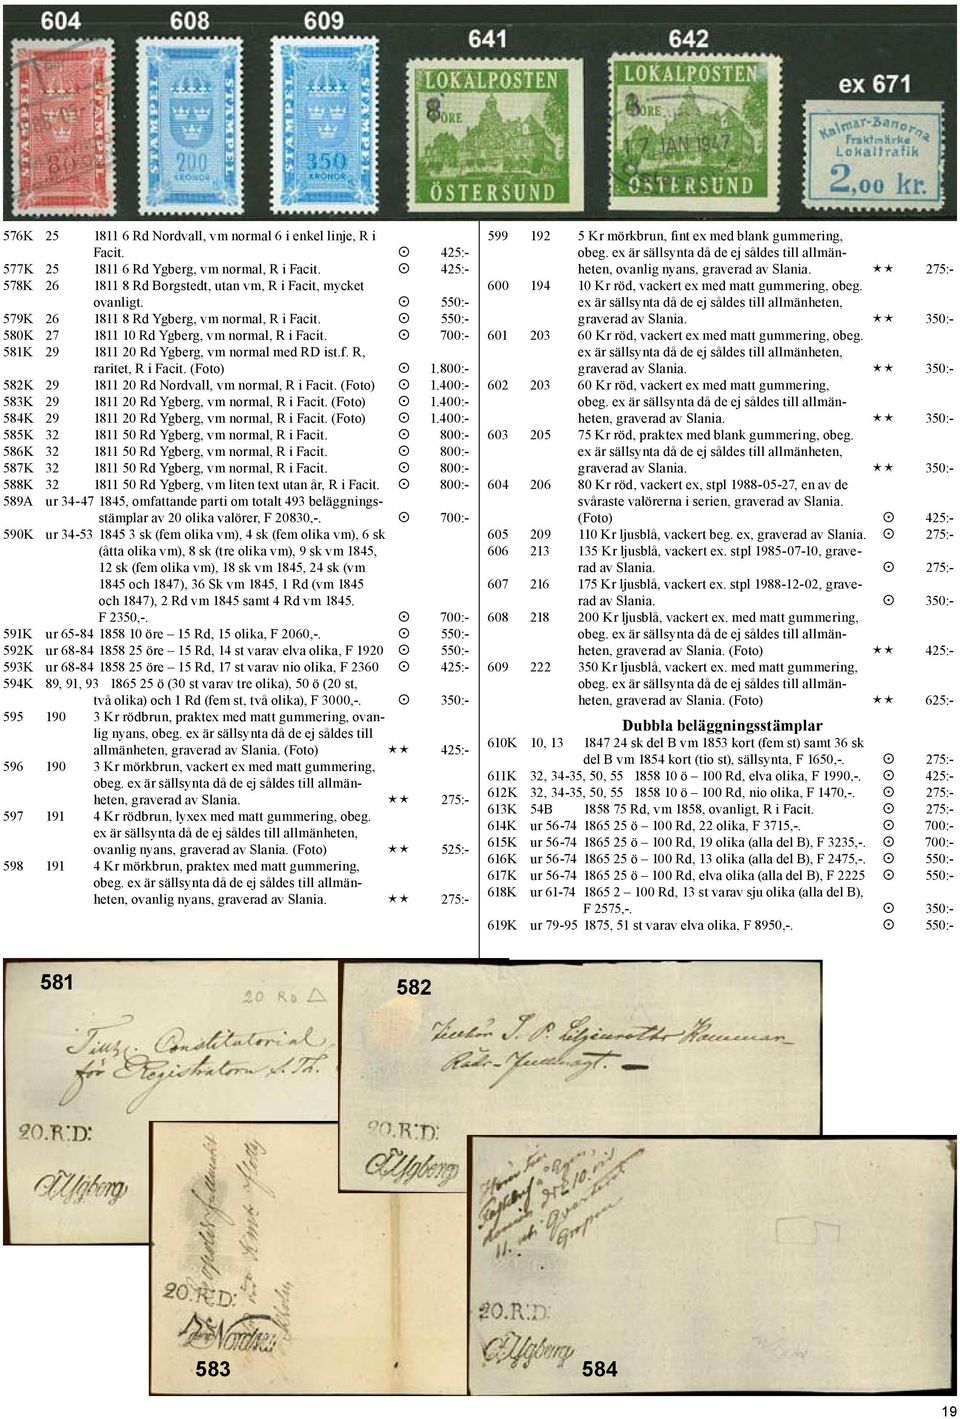 604
608
609
641
642
ex 671
STAMPEL
STAMPEL
80
KRONOR
STAMPEL
STAMPEL
200
KRONOR
STAMPEL
STAMPEL
350
KRONOR
LOKALPOSTEN
8 ÖRE
ÖSTERSUND
LOKALPOSTEN
8 ÖRE
17 JAN 1947
ÖSTERSUND
Kalmar-Banorna
Fraktmärke
Lokaltrafik
2,00 kr.
576K 25 1811 6 Rd Nordvall, vm normal 6 i enkel linje, R i
Facit. ⊙ 425:-
577K 25 1811 6 Rd Ygberg, vm normal, R i Facit. ⊙ 425:-
578K 26 1811 8 Rd Borgstedt, utan vm, R i Facit, mycket
ovanligt. ⊙ 550:-
579K 26 1811 8 Rd Ygberg, vm normal, R i Facit. ⊙ 550:-
580K 27 1811 10 Rd Ygberg, vm normal, R i Facit. ⊙ 700:-
581K 29 1811 20 Rd Ygberg, vm normal med RD ist.f. R,
raritet, R i Facit. (Foto) ⊙ 1.800:-
582K 29 1811 20 Rd Nordvall, vm normal, R i Facit. (Foto) ⊙ 1.400:-
583K 29 1811 20 Rd Ygberg, vm normal, R i Facit. (Foto) ⊙ 1.400:-
584K 29 1811 20 Rd Ygberg, vm normal, R i Facit. (Foto) ⊙ 1.400:-
585K 32 1811 50 Rd Ygberg, vm normal, R i Facit. ⊙ 800:-
586K 32 1811 50 Rd Ygberg, vm normal, R i Facit. ⊙ 800:-
587K 32 1811 50 Rd Ygberg, vm normal, R i Facit. ⊙ 800:-
588K 32 1811 50 Rd Ygberg, vm liten text utan år, R i Facit. ⊙ 800:-
589A ur 34-47 1845, omfattande parti om totalt 493 beläggnings-
stämplar av 20 olika valörer, F 20830,-. ⊙ 700:-
590K ur 34-53 1845 3 sk (fem olika vm), 4 sk (fem olika vm), 6 sk
(åtta olika vm), 8 sk (tre olika vm), 9 sk vm 1845,
12 sk (fem olika vm), 18 sk vm 1845, 24 sk (vm
1845 och 1847), 36 Sk vm 1845, 1 Rd (vm 1845
och 1847), 2 Rd vm 1845 samt 4 Rd vm 1845.
F 2350,-. ⊙ 700:-
591K ur 65-84 1858 10 öre – 15 Rd, 15 olika, F 2060,-. ⊙ 550:-
592K ur 68-84 1858 25 öre – 15 Rd, 14 st varav elva olika, F 1920 ⊙ 550:-
593K ur 68-84 1858 25 öre – 15 Rd, 17 st varav nio olika, F 2360 ⊙ 425:-
594K 89, 91, 93 1865 25 ö (30 st varav tre olika), 50 ö (20 st,
två olika) och 1 Rd (fem st, två olika), F 3000,-. ⊙ 350:-
595 190 3 Kr rödbrun, praktex med matt gummering, ovan-
lig nyans, obeg. ex är sällsynta då de ej såldes till
allmänheten, graverad av Slania. (Foto) ★★ 425:-
596 190 3 Kr mörkbrun, vackert ex med matt gummering,
obeg. ex är sällsynta då de ej såldes till allmän-
heten, graverad av Slania. ★★ 275:-
597 191 4 Kr rödbrun, lyxex med matt gummering, obeg.
ex är sällsynta då de ej såldes till allmänheten,
ovanlig nyans, graverad av Slania. (Foto) ★★ 525:-
598 191 4 Kr mörkbrun, praktex med matt gummering,
obeg. ex är sällsynta då de ej såldes till allmän-
heten, ovanlig nyans, graverad av Slania. ★★ 275:-
599 192 5 Kr mörkbrun, fint ex med blank gummering,
obeg. ex är sällsynta då de ej såldes till allmän-
heten, ovanlig nyans, graverad av Slania. ★★ 275:-
600 194 10 Kr röd, vackert ex med matt gummering, obeg.
ex är sällsynta då de ej såldes till allmänheten,
graverad av Slania. ★★ 350:-
601 203 60 Kr röd, vackert ex med matt gummering, obeg.
ex är sällsynta då de ej såldes till allmänheten,
graverad av Slania. ★★ 350:-
602 203 60 Kr röd, vackert ex med matt gummering,
obeg. ex är sällsynta då de ej såldes till allmän-
heten, graverad av Slania. ★★ 350:-
603 205 75 Kr röd, praktex med blank gummering, obeg.
ex är sällsynta då de ej såldes till allmänheten,
graverad av Slania. ★★ 350:-
604 206 80 Kr röd, vackert ex, stpl 1988-05-27, en av de
svåraste valörerna i serien, graverad av Slania.
(Foto) ⊙ 425:-
605 209 110 Kr ljusblå, vackert beg. ex, graverad av Slania. ⊙ 275:-
606 213 135 Kr ljusblå, vackert ex. stpl 1985-07-10, grave-
rad av Slania. ⊙ 275:-
607 216 175 Kr ljusblå, vackert ex. stpl 1988-12-02, grave-
rad av Slania. ⊙ 350:-
608 218 200 Kr ljusblå, vackert ex. med matt gummering,
obeg. ex är sällsynta då de ej såldes till allmän-
heten, graverad av Slania. (Foto) ★★ 425:-
609 222 350 Kr ljusblå, vackert ex. med matt gummering,
obeg. ex är sällsynta då de ej såldes till allmän-
heten, graverad av Slania. (Foto) ★★ 625:-
Dubbla beläggningsstämplar
610K 10, 13 1847 24 sk del B vm 1853 kort (fem st) samt 36 sk
del B vm 1854 kort (tio st), sällsynta, F 1650,-. ⊙ 275:-
611K 32, 34-35, 50, 55 1858 10 ö – 100 Rd, elva olika, F 1990,-. ⊙ 425:-
612K 32, 34-35, 50, 55 1858 10 ö – 100 Rd, nio olika, F 1470,-. ⊙ 275:-
613K 54B 1858 75 Rd, vm 1858, ovanligt, R i Facit. ⊙ 275:-
614K ur 56-74 1865 25 ö – 100 Rd, 22 olika, F 3715,-. ⊙ 700:-
615K ur 56-74 1865 25 ö – 100 Rd, 19 olika (alla del B), F 3235,-. ⊙ 700:-
616K ur 56-74 1865 25 ö – 100 Rd, 13 olika (alla del B), F 2475,-. ⊙ 550:-
617K ur 56-74 1865 25 ö – 100 Rd, elva olika (alla del B), F 2225 ⊙ 550:-
618K ur 61-74 1865 2 – 100 Rd, 13 st varav sju olika (alla del B),
F 2575,-. ⊙ 350:-
619K ur 79-95 1875, 51 st varav elva olika, F 8950,-. ⊙ 550:-
581
20 RD
Constitutorial
för Registratorn
20.R:D:
Ygberg
582
20.R:D:
Ygberg
20.R:D:
583
20.R:D:
Ygberg
584
19